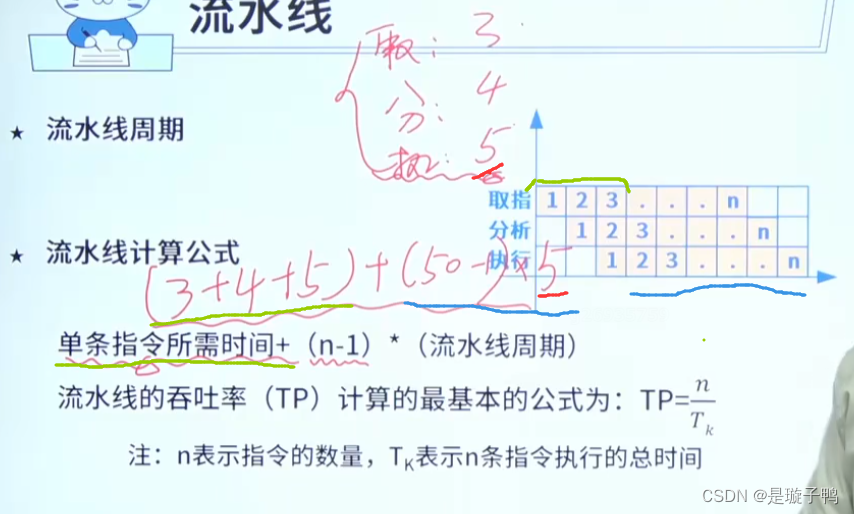 流水线
取: 3
分: 4
★ 流水线周期
执: 5
取指 1 2 3 . . . n
分析 1 2 3 . . . n
★ 流水线计算公式
执行 1 2 3 . . . n
(3+4+5)+(50-1)*5
单条指令所需时间+（n-1）*（流水线周期）
流水线的吞吐率（TP）计算的最基本的公式为：TP=n/Tk
注：n表示指令的数量，TK表示n条指令执行的总时间
CSDN @是璇子鸭